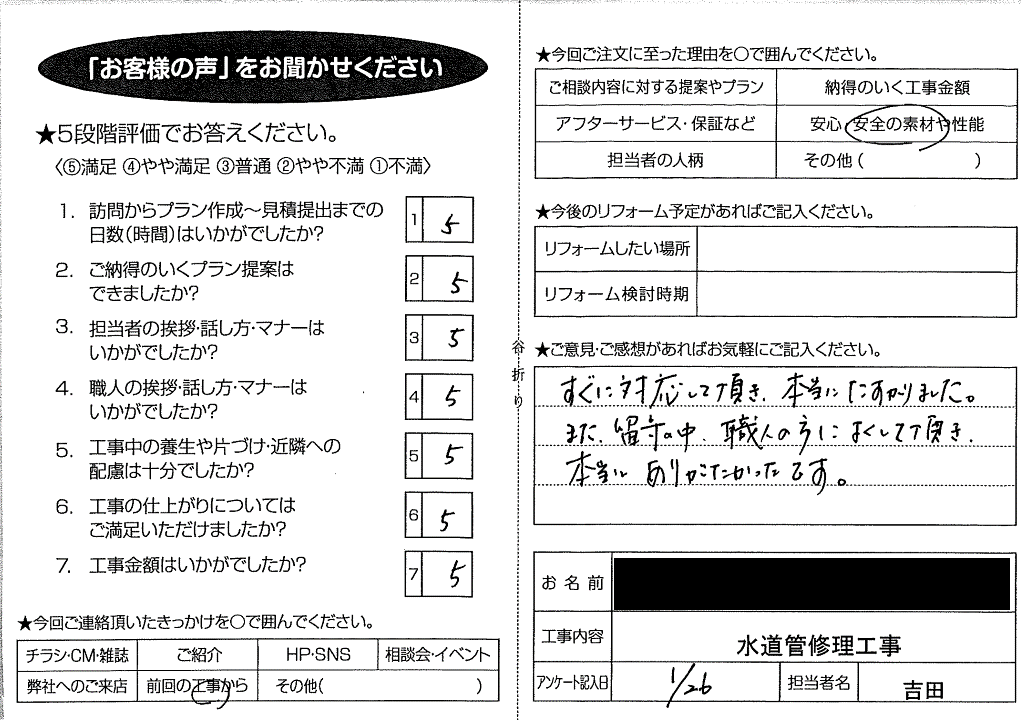 「お客様の声」をお聞かせください
★5段階評価でお答えください。
〈⑤満足 ④やや満足 ③普通 ②やや不満 ①不満〉
1. 訪問からプラン作成～見積提出までの
日数(時間)はいかがでしたか?
1 5
2. ご納得のいくプラン提案は
できましたか?
2 5
3. 担当者の挨拶・話し方・マナーは
いかがでしたか?
3 5
4. 職人の挨拶・話し方・マナーは
いかがでしたか?
4 5
5. 工事中の養生や片づけ・近隣への
配慮は十分でしたか?
5 5
6. 工事の仕上がりについては
ご満足いただけましたか?
6 5
7. 工事金額はいかがでしたか?
7 5
★今回ご連絡頂いたきっかけを○で囲んでください。
チラシ・CM・雑誌 ご紹介 HP・SNS 相談会・イベント
弊社へのご来店 前回の工事から その他( )
谷折り
★今回ご注文に至った理由を○で囲んでください。
ご相談内容に対する提案やプラン 納得のいく工事金額
アフターサービス・保証など 安心、安全の素材や性能
担当者の人柄 その他( )
★今後のリフォーム予定があればご記入ください。
リフォームしたい場所
リフォーム検討時期
★ご意見・ご感想があればお気軽にご記入ください。
すぐに対応して頂き、本当にたすかりました。
また、留守の中、職人の方によくして頂き、
本当に ありがたかったです。
お名前
工事内容 水道管修理工事
アンケート記入日 1/26 担当者名 吉田